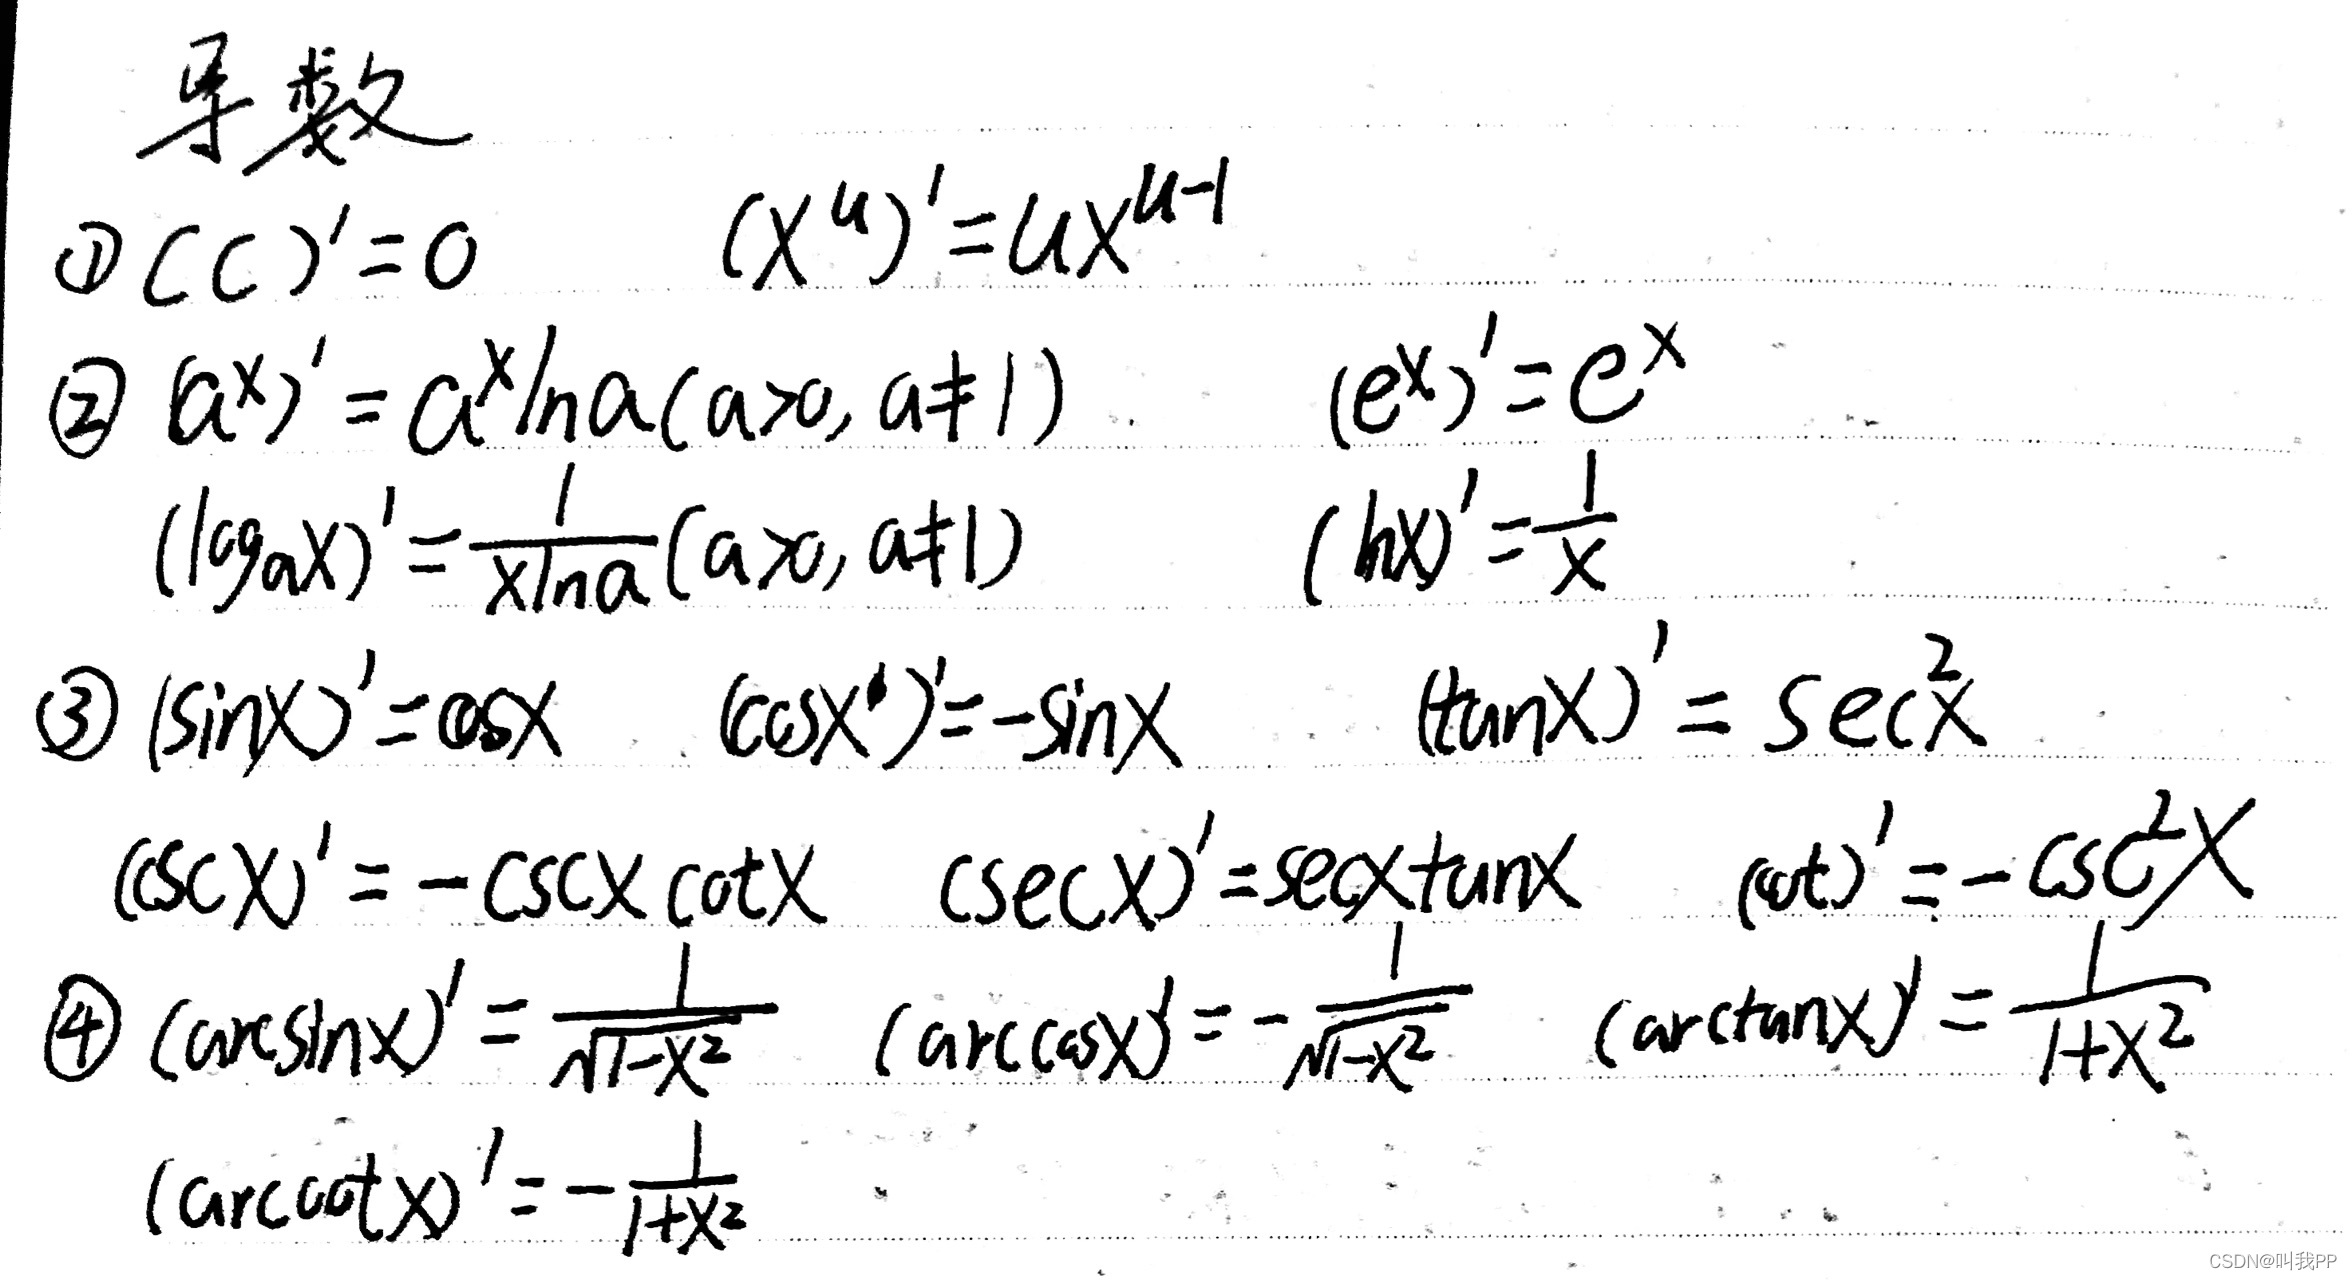 导数
① (C)'=0 (x^u)'=ux^{u-1}
② (a^x)'=a^x lna (a>0, a≠1) (e^x)'=e^x
(log_a x)'=\frac{1}{xlna} (a>0, a≠1) (lnx)'=\frac{1}{x}
③ (sinx)'=cosx (cosx')'=-sinx (tanx)'=sec^2x
(cscx)'=-cscx cotx (secx)'=secxtanx (cot)'=-csc^2x
④ (arcsinx)'=\frac{1}{\sqrt{1-x^2}} (arccosx)'=-\frac{1}{\sqrt{1-x^2}} (arctanx)'=\frac{1}{1+x^2}
(arccotx)'=-\frac{1}{1+x^2}
CSDN@叫我PP